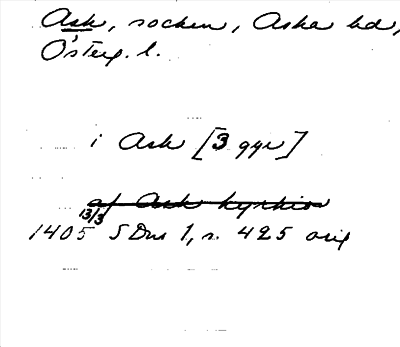 Ask, socken, Aska hd,
Österg. l.
i Ask [3 ggr]
af Ask kyrkio
13/3
1405 SDns 1, s. 425 orig